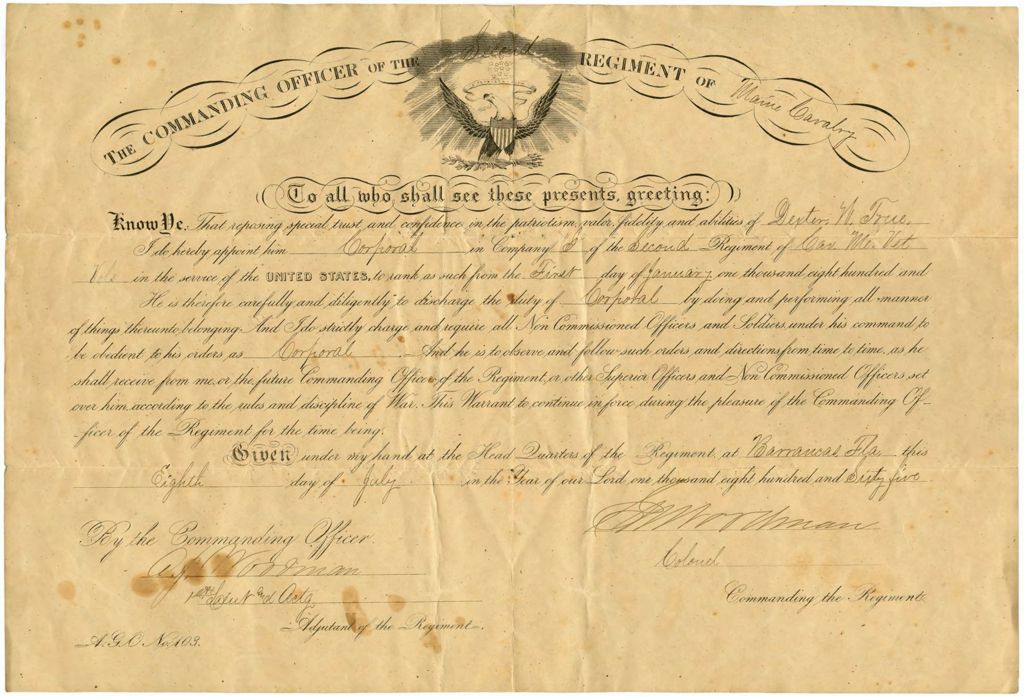 THE COMMANDING OFFICER OF THE Second REGIMENT OF Maine Cavalry
To all who shall see these presents, greeting:
Know Ye, That reposing special trust and confidence in the patriotism, valor, fidelity and abilities of Dexter W. True,
I do hereby appoint him Corporal in Company of the Second Regiment of Cav. Me. Vet
Vol in the service of the UNITED STATES, to rank as such from the First day of January one thousand eight hundred and
He is therefore carefully and diligently to discharge the duty of Corporal by doing and performing all manner
of things thereunto belonging. And I do strictly charge and require all Non Commissioned Officers and Soldiers under his command to
be obedient to his orders as Corporal. And he is to observe and follow such orders and directions from time to time, as he
shall receive from me, or the future Commanding Officer of the Regiment, or other Superior Officers and Non Commissioned Officers set
over him, according to the rules and discipline of War. This Warrant to continue in force during the pleasure of the Commanding Of-
ficer of the Regiment for the time being.
Given under my hand at the Head Quarters of the Regiment, at Barrancas Fla this
Eighth day of July in the Year of our Lord one thousand eight hundred and Sixty five
Woodman
By the Commanding Officer.
Colonel
Woodman
Commanding the Regiment.
1st Lieut and Actg
Adjutant of the Regiment.
A.G.O. No. 103.